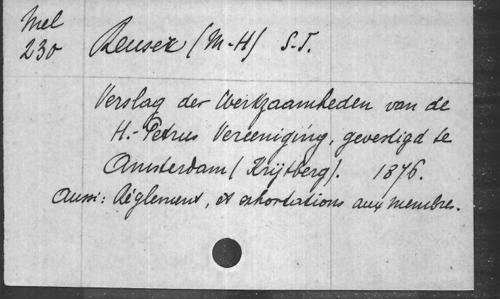 Mel
230
Reuser (M-H) S.J.
Verslag der Werkzaamheden van de
H.-Petrus Vereeniging, gevestigd te
Amsterdam (Krijtberg). 1876.
Aussi: Réglement, et exhortations aux membres.